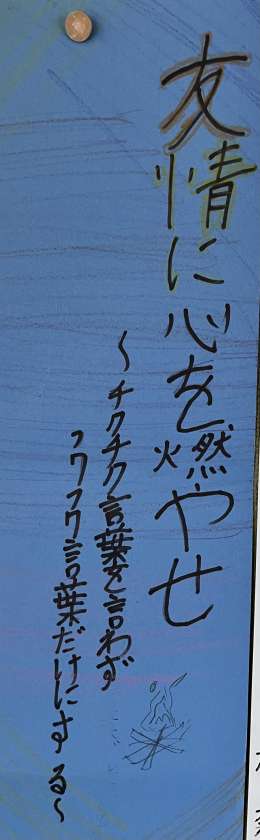 友情に心を燃やせ
〜チクチク言葉を言わず
フワフワ言葉だけにする〜